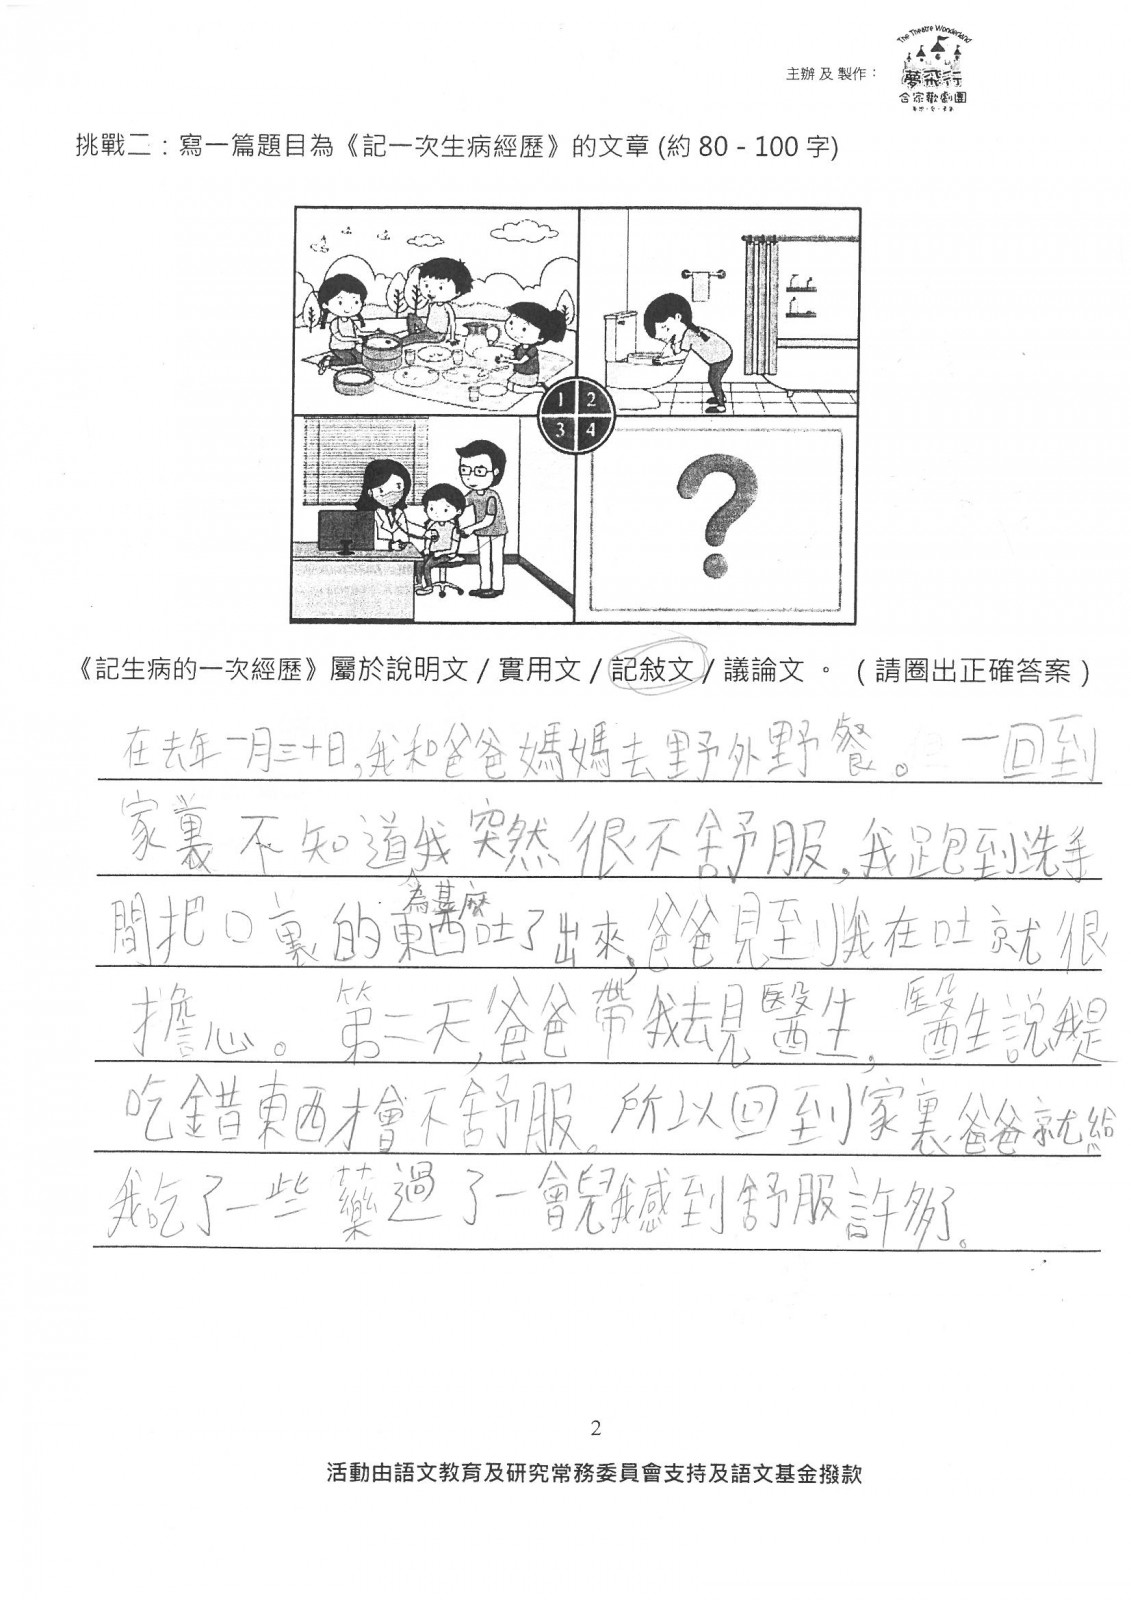 The Theatre Wonderland
主辦 及 製作：
夢飛行
合家歡劇團
挑戰二：寫一篇題目為《記一次生病經歷》的文章 (約 80 - 100 字)
1 2
3 4
?
《記生病的一次經歷》屬於說明文 / 實用文 / 記敍文 / 議論文 。 （ 請圈出正確答案 ）
在去年一月三十日，我和爸爸媽媽去野外野餐。一回到
家裏不知道我突然很不舒服，我跑到洗手
為甚麼
間把口裏的東西吐了出來，爸爸見到我在吐就很
擔心。第二天，爸爸帶我去見醫生，醫生說我是
吃錯東西才會不舒服。所以回到家裏爸爸就給
我吃了一些藥過了一會兒我感到舒服許多了。
2
活動由語文教育及研究常務委員會支持及語文基金撥款